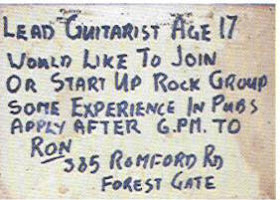 LEAD GUITARIST AGE 17
WOULD LIKE TO JOIN
OR START UP ROCK GROUP
SOME EXPERIENCE IN PUBS
APPLY AFTER 6.PM. TO
RON
385 ROMFORD RD
FOREST GATE